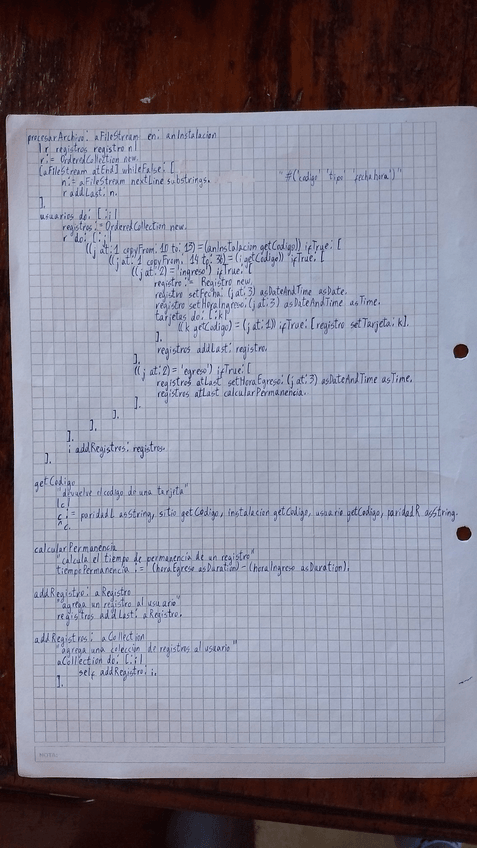 procesarArchivo: aFileStream en: anInstalacion
| r registros registro n |
r := OrderedCollection new.
[aFileStream atEnd] whileFalse: [
n := aFileStream nextLine substrings. "#('codigo' 'tipo' 'fechahora')"
r addLast: n.
].
usuarios do: [:i |
registros := OrderedCollection new.
r do: [:j |
((j at: 1 copyFrom: 10 to: 13) = (anInstalacion getCodigo)) ifTrue: [
((j at: 1 copyFrom: 14 to: 36) = (i getCodigo)) ifTrue: [
((j at: 2) = 'ingreso') ifTrue: [
registro := Registro new.
registro setFecha: (j at: 3) asDateAndTime asDate.
registro setHoraIngreso: (j at: 3) asDateAndTime asTime.
tarjetas do: [:k |
((k getCodigo) = (j at: 1)) ifTrue: [registro setTarjeta: k].
].
registros addLast: registro.
].
((j at: 2) = 'egreso') ifTrue: [
registros atLast setHoraEgreso: (j at: 3) asDateAndTime asTime.
registros atLast calcularPermanencia.
].
].
].
].
i addRegistros: registros.
].
getCodigo
"devuelve el codigo de una tarjeta"
|c|
c := paridadL asString, sitio getCodigo, instalacion getCodigo, usuario getCodigo, paridadR asString.
^c.
calcularPermanencia
"calcula el tiempo de permanencia de un registro"
tiempoPermanencia := (horaEgreso asDuration) - (horaIngreso asDuration).
addRegistro: aRegistro
"agrega un registro al usuario"
registros addLast: aRegistro.
addRegistros: aCollection
"agrega una colección de registros al usuario"
aCollection do: [:i |
self addRegistro: i.
].
NOTA: